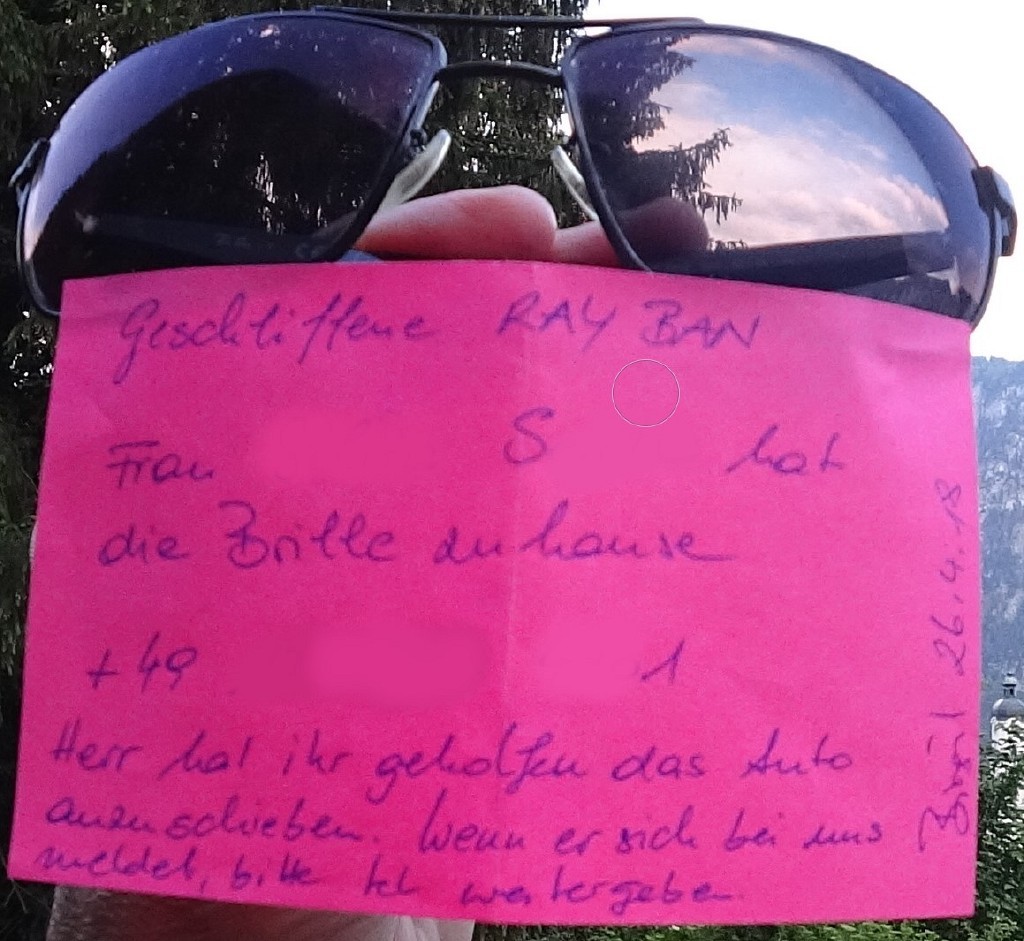 Geschliffene RAY BAN
Frau S hat
die Brille zuhause
+49 1
Herr hat ihr geholfen das Auto
anzuschieben. Wenn er sich bei uns
meldet, bitte tel weitergeben.
26.4.18